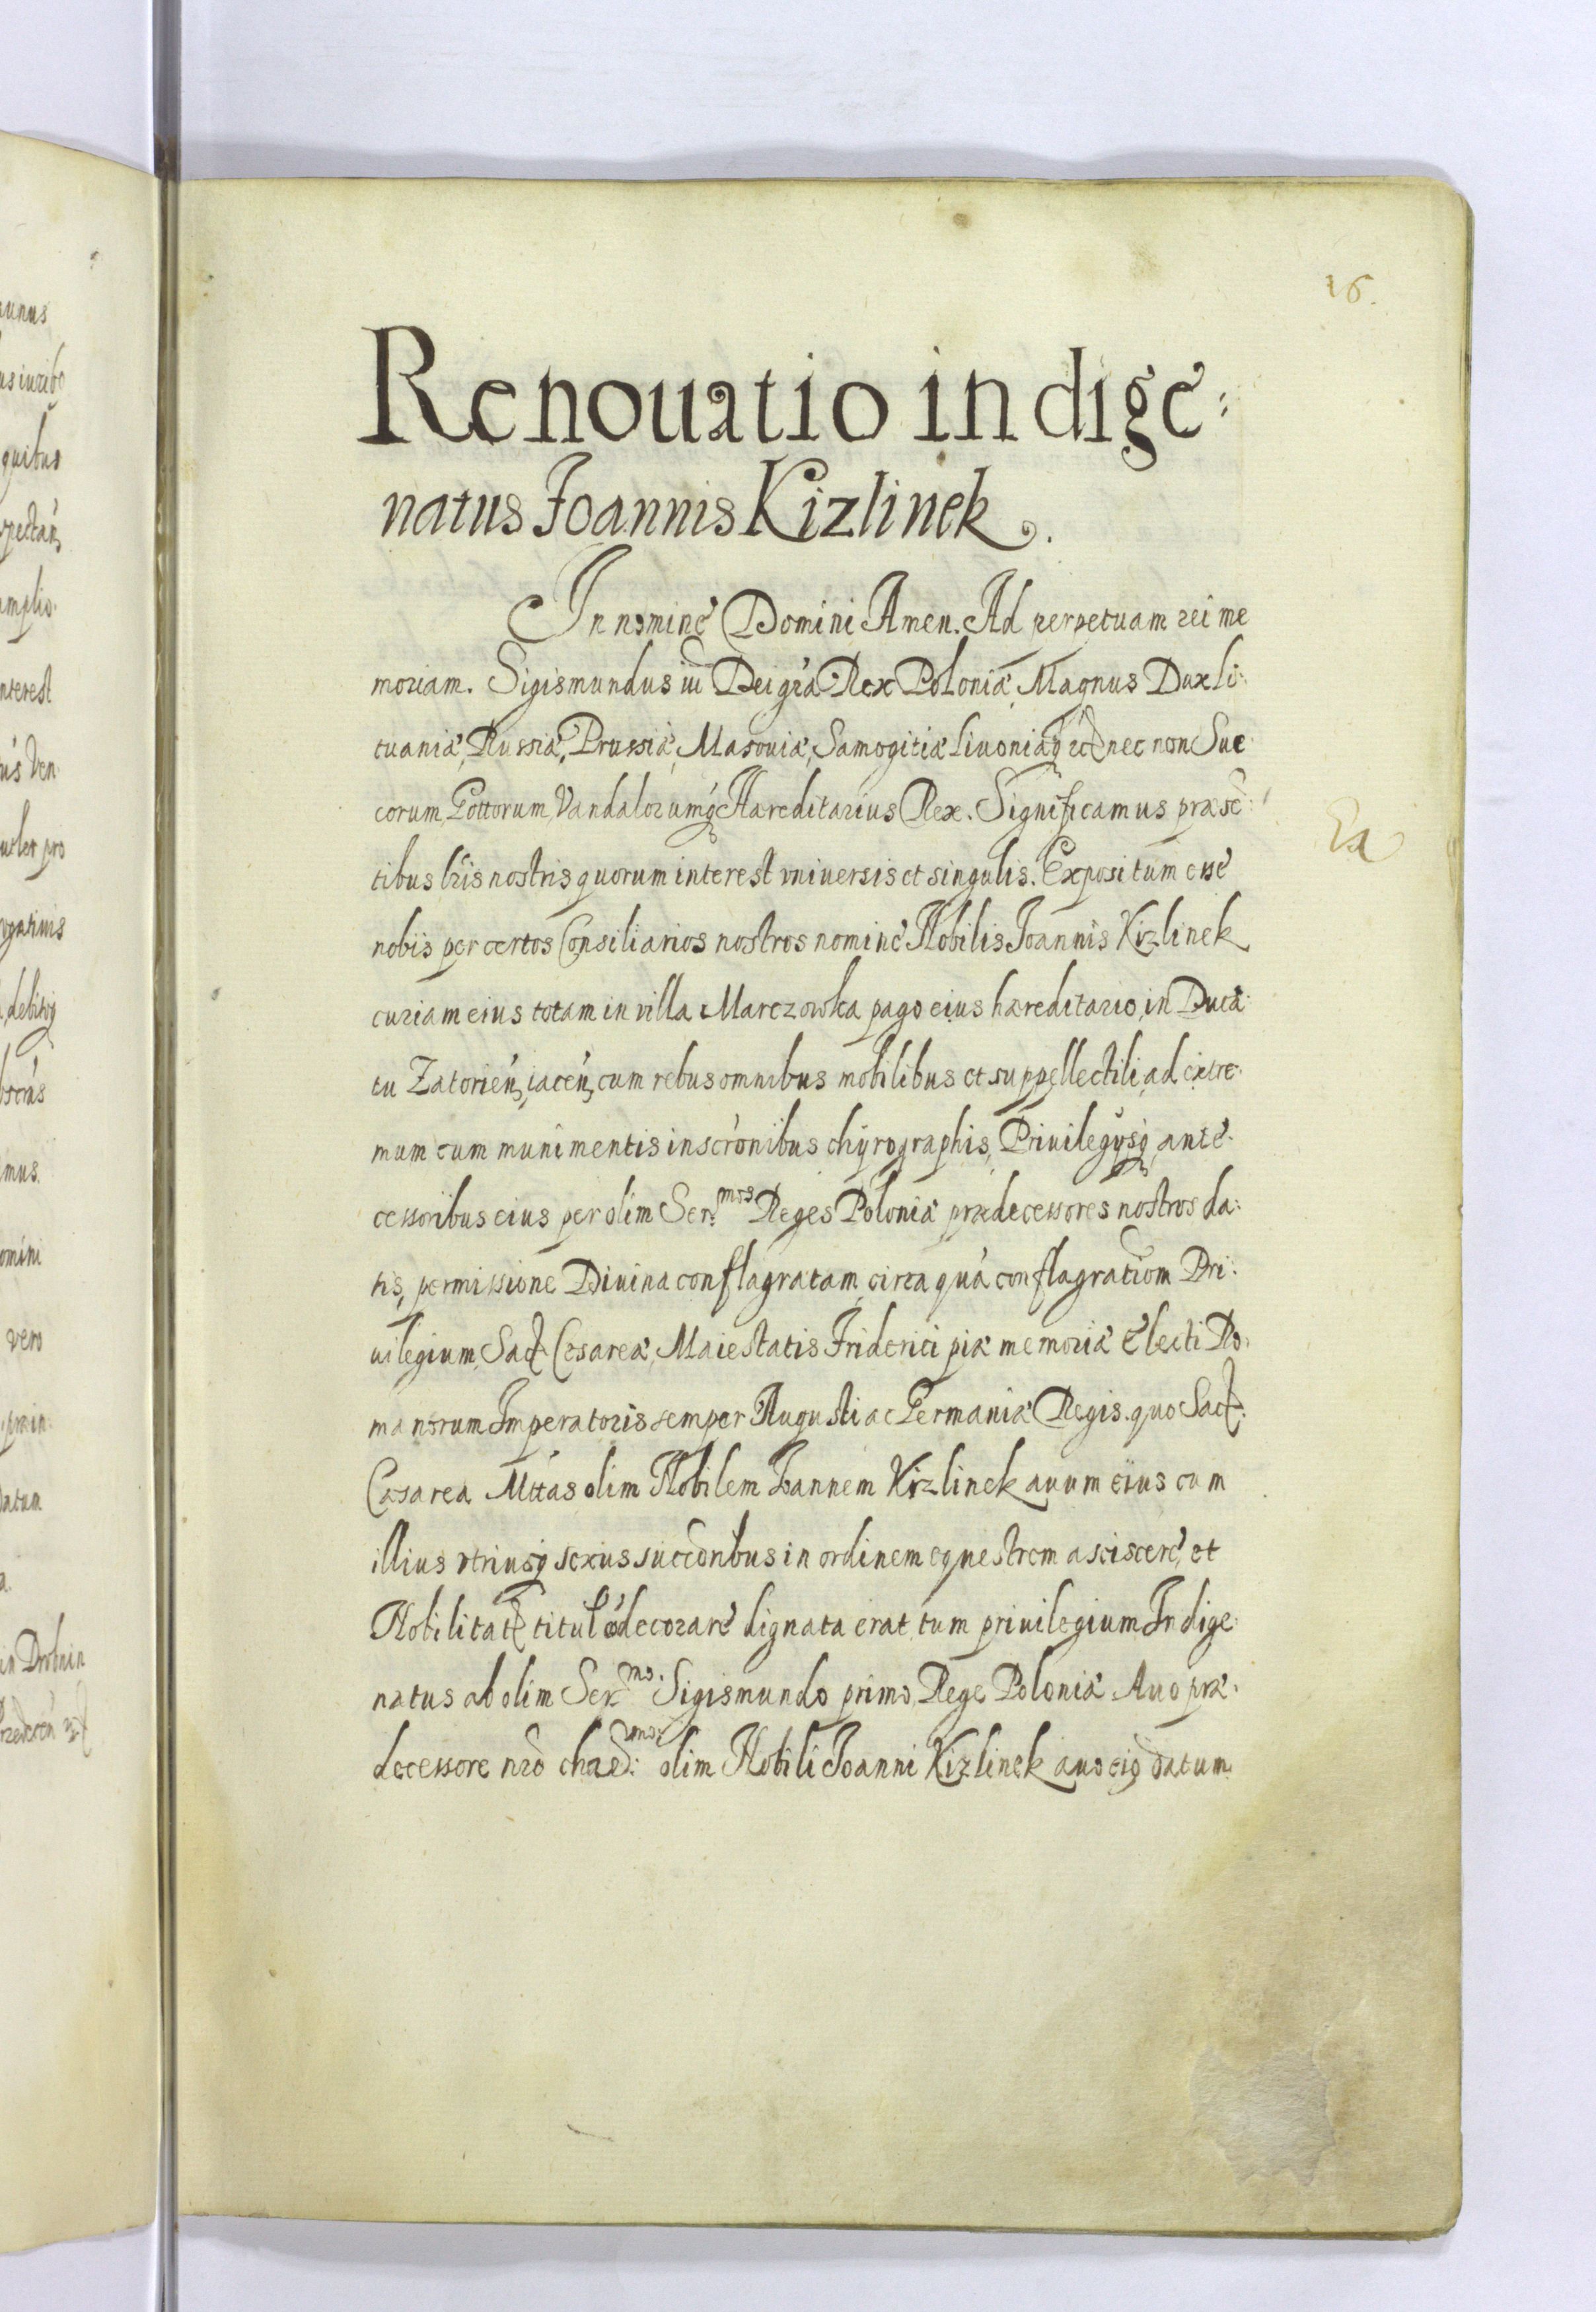 16.
Renouatio indige:
natus Joannis Kizlinek.
In nomine Domini Amen. Ad perpetuam rei me
moriam. Sigismundus iii Dei gra Rex Poloniæ, Magnus Dux li:
tuaniæ, Russiæ, Prussiæ, Masouiæ, Samogitiæ Liuoniæq etc nec non Sue
corum, Gottorum, Vandalorumq Hæreditarius Rex. Significamus præsē:
tibus lris nostris quorum interest vniuersis et singulis. Expositum esse
nobis per certos Consiliarios nostros nomine Nobilis Joannis Kizlinek
curiam eius totam in villa Marczowka pago eius hæreditario, in Duca
tu Zatorien, iacen, cum rebus omnibus mobilibus et suppellectili, ad extre:
mum cum munimentis inscronibus chyrographis, Priuilegijsq ante
cessoribus eius per olim Ser:mos Reges Poloniæ prædecessores nostros da:
tis, permissione Diuina conflagratam, circa quā conflagrationem Pri:
uilegium, Sac Cæsareæ, Maiestatis Friderici piæ memoriæ Electi Ro:
manorum Imperatoris semper Augusti ac Germaniæ Regis. quo Sac:
Cæsarea Mttas olim Nobilem Joannem Kizlinek auum eius cum
illius vtriusq sexus succedonibus in ordinem equestrem asciscere, et
Nobilitatis titulo decorare dignata erat, tum priuilegium Indige
natus ab olim Ser:mo Sigismundo primo, Rege Poloniæ Auo præ:
decessore nro char:mo olim Nobili Joanni Kizlinek auo eiq datum